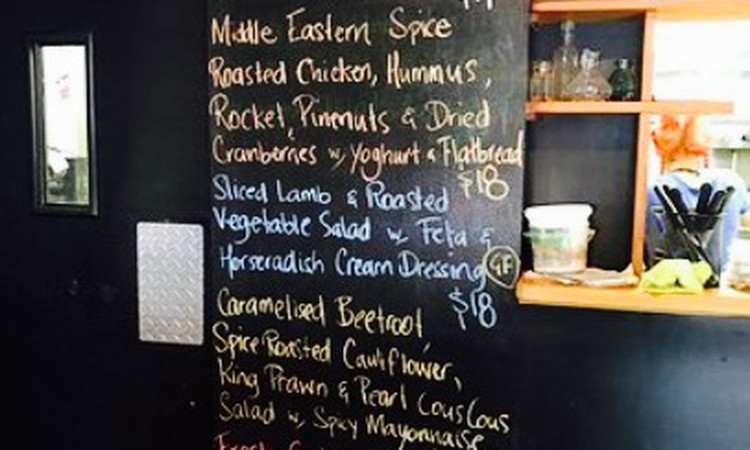 Middle Eastern Spice
Roasted Chicken, Hummus,
Rocket, Pinenuts & Dried
Cranberries w, Yoghurt & Flatbread
$18
Sliced Lamb & Roasted
Vegetable Salad w, Feta &
Horseradish Cream Dressing GF
$18
Caramelised Beetroot,
Spice Roasted Cauliflower,
King Prawn & Pearl CousCous
Salad w, Spicy Mayonnaise